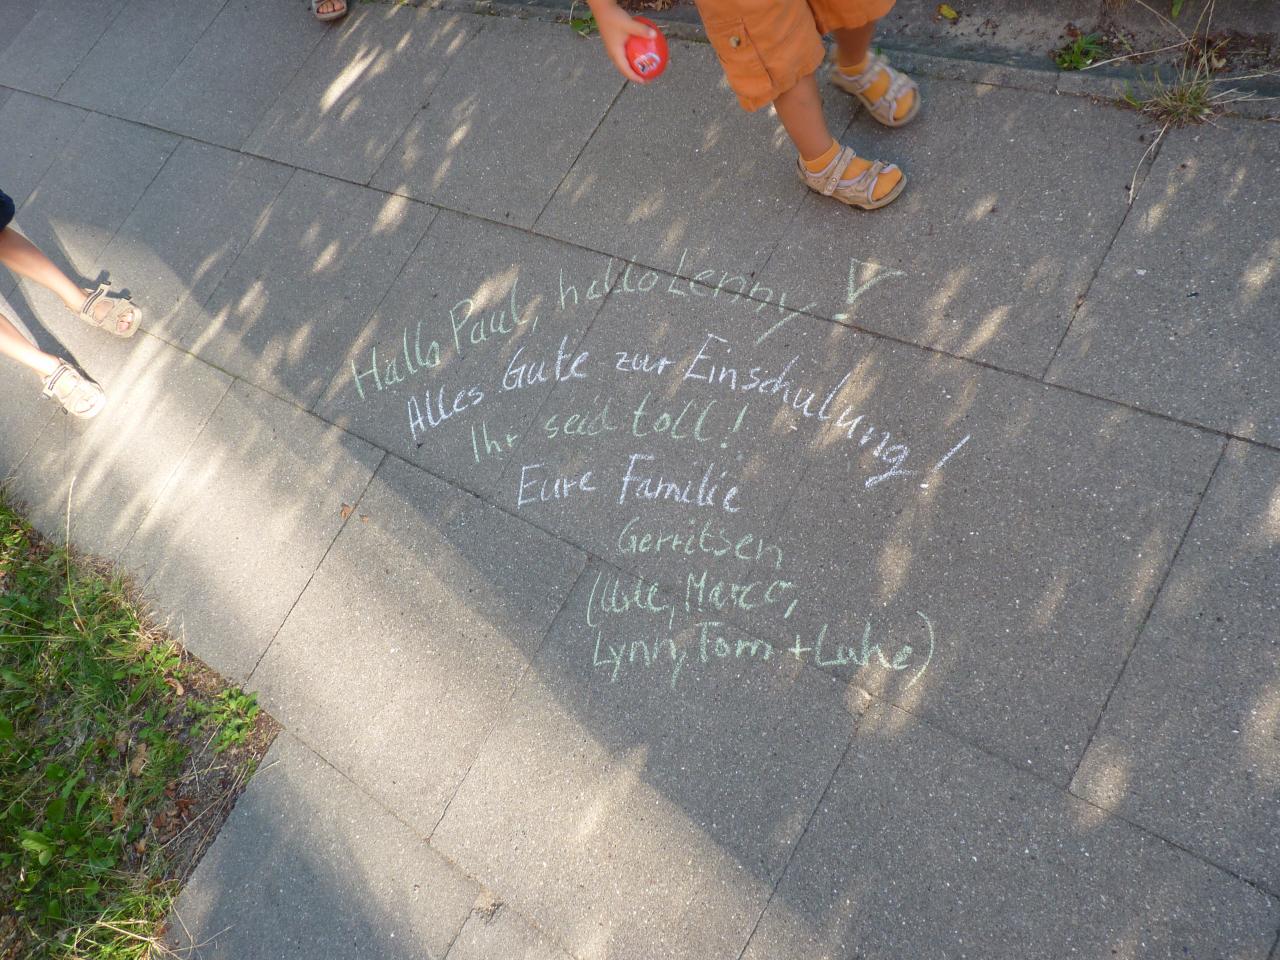 Hallo Paul, hallo Lenny!
Alles Gute zur Einschulung!
Ihr seid toll!
Eure Familie
Gerritsen
Marco,
Lynn, Tom + Luke)